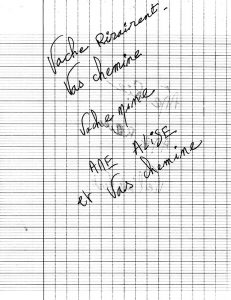 Vache Rizairent.
Vas chemine
Vache
ANE ALISE
et Vas chemine